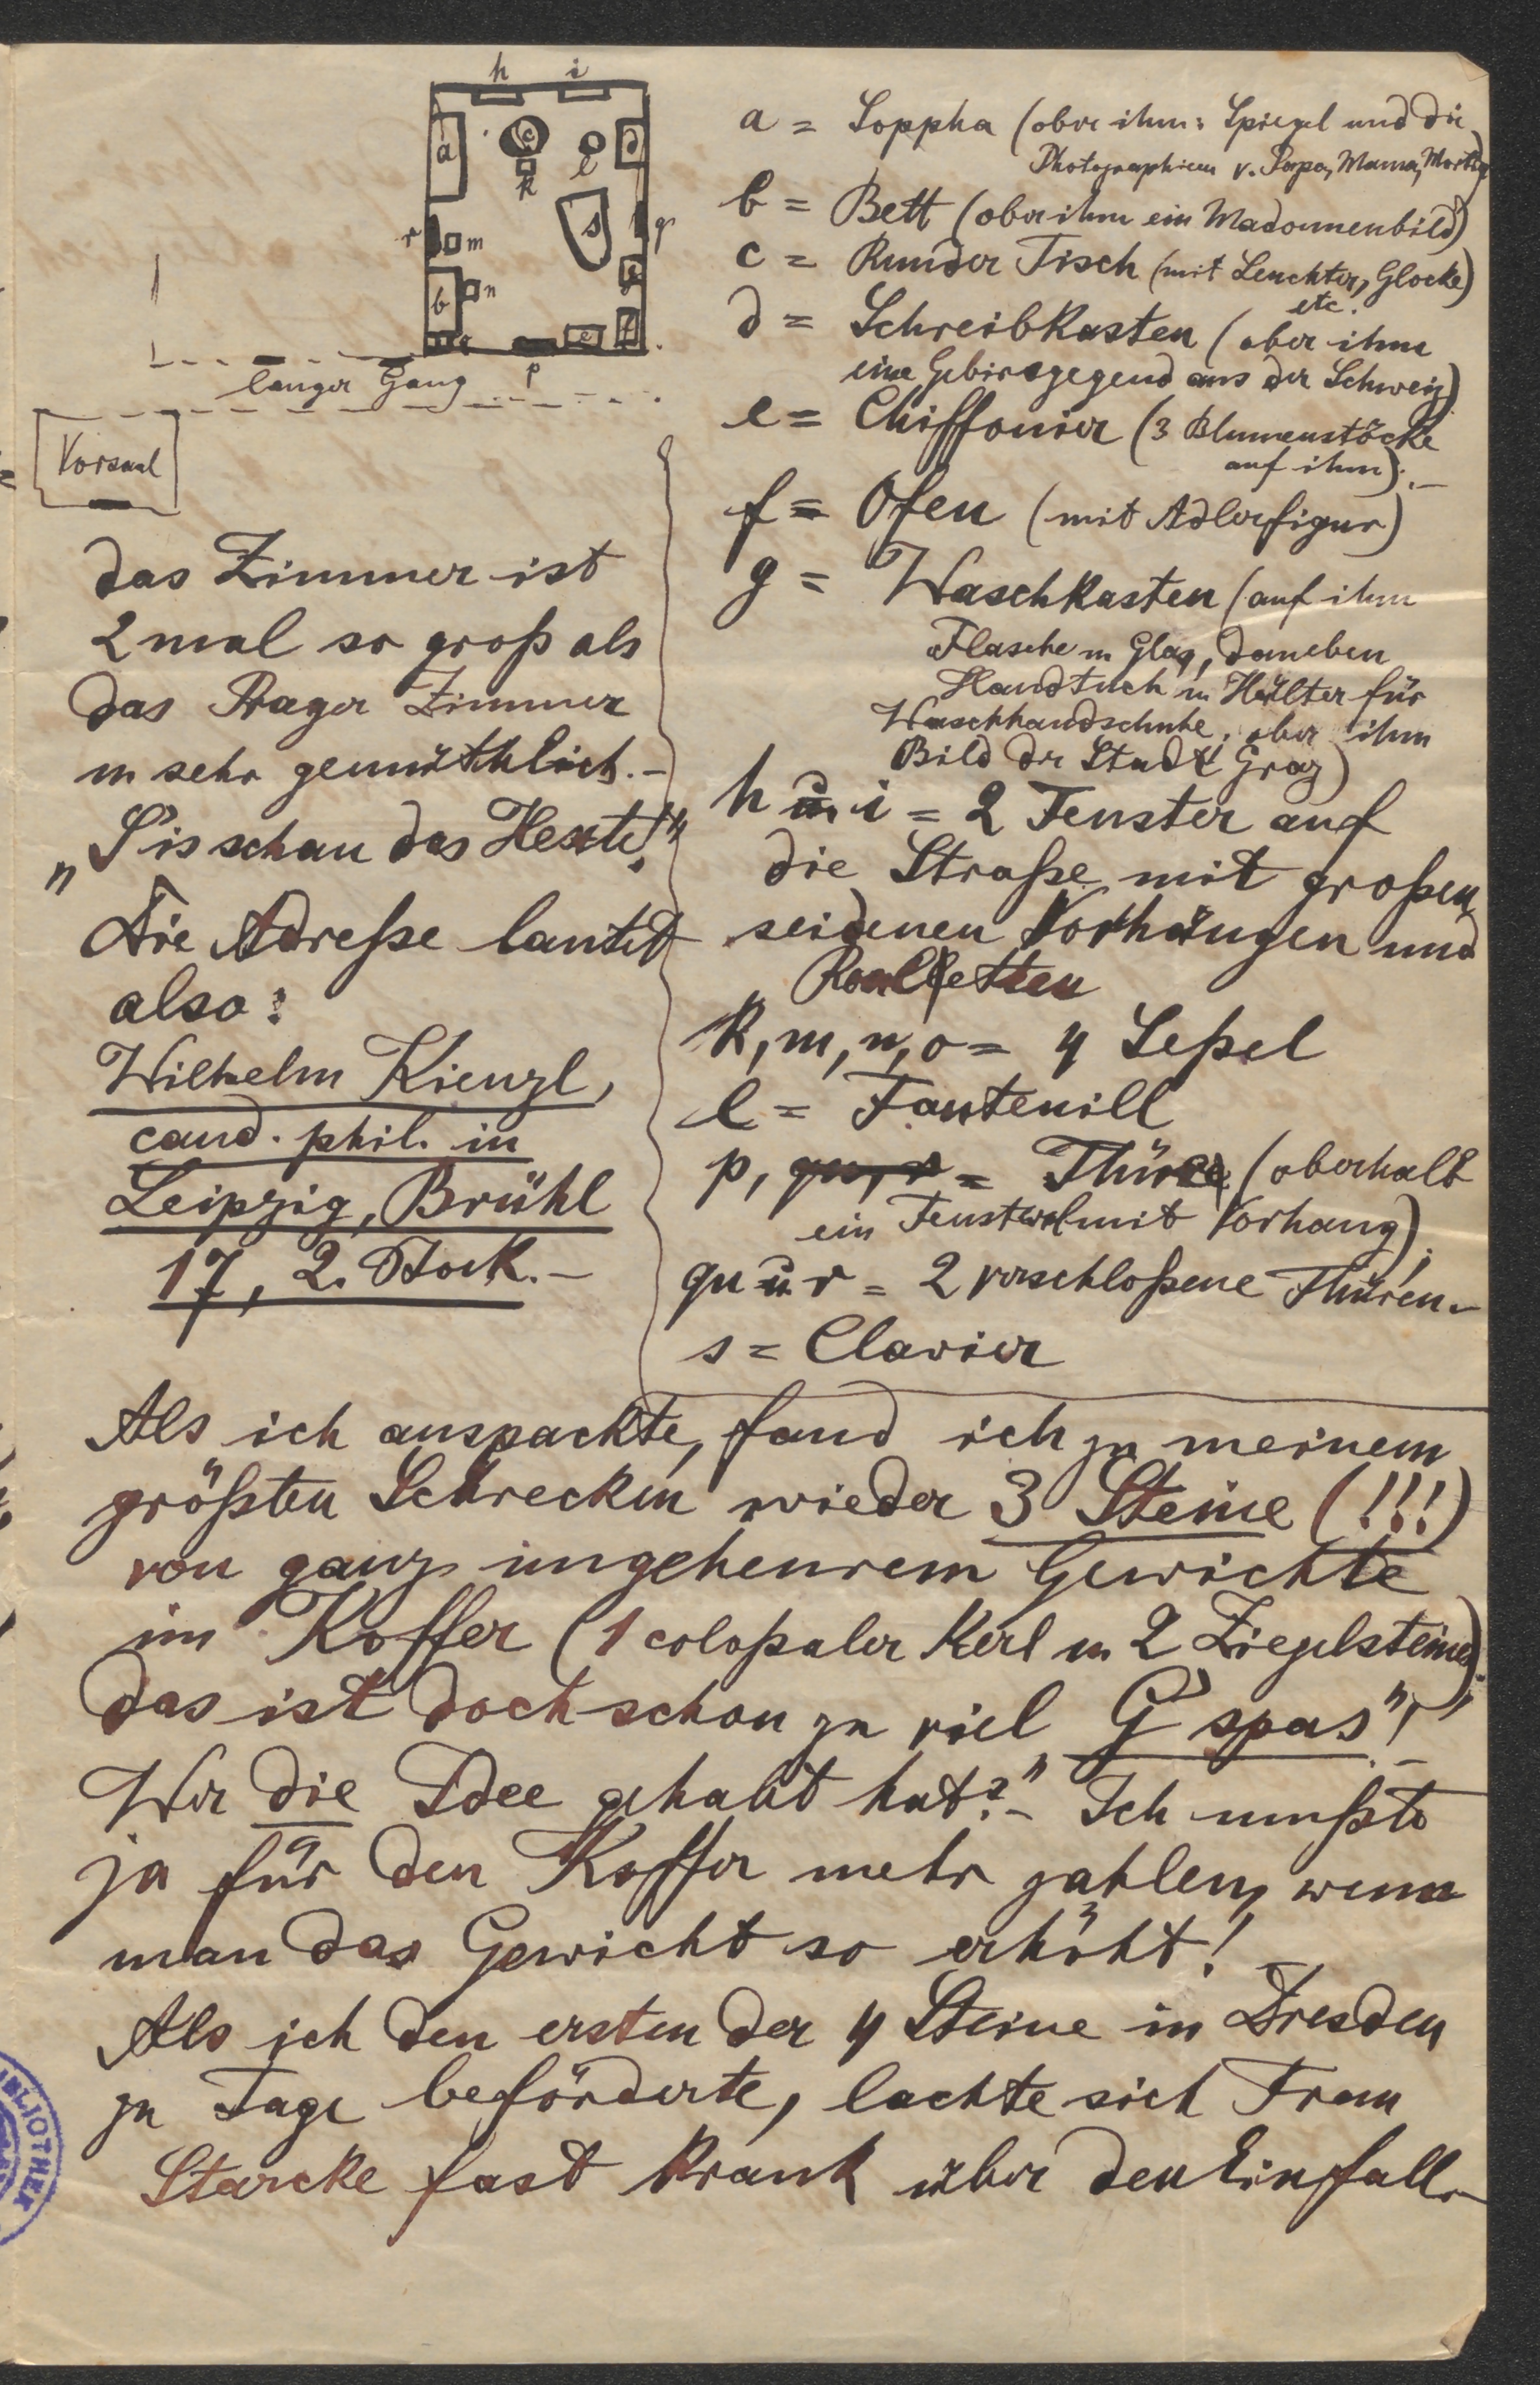 h i
a c d
k l
s
r m qu
g
b n
o e f
p
langer Gang
Vorsaal
das Zimmer ist
2 mal so groß als
das Prager Zimmer
u sehr gemüthlich.–
„Sis schau das Hexte!"
Die Adreße lautet
also:
Wilhelm Kienzl,
cand. phil. in
Leipzig, Brühl
17, 2. Stock.–
a = Soppha (ober ihm: Spiegel und die
Photographieen v. Papa, Mama,
b = Bett (ober ihm ein Madonnenbild)
c = Runder Tisch (mit Leuchter, Glocke)
etc.
d = Schreibkasten (ober ihm
eine Gebirgsgegend aus der Schweiz)
e = Chiffonier (3 Blumenstöcke
auf ihm).–
f = Ofen (mit Adlerfigur)
g = Waschkasten (auf ihm
Flasche u Glas, daneben
Handtuch u Hälter für
Waschhandschuhe, ober ihm
Bild der Stadt Graz)
h u. i = 2 Fenster auf
die Straße mit großen
seidenen Vorhängen und
Rouletten
k, m, n, o = 4 Seßel
l = Fauteuill
p, qu, r = Thüre (oberhalb
ein Fensterl mit Vorhang).
qu u. r = 2 verschloßene Thüren.–
s = Clavier
Als ich auspackte, fand ich zu meinem
größten Schrecken wieder 3 Steine (!!!)
von ganz ungeheurem Gewichte
im Koffer (1 coloßaler Kerl u 2 Ziegelsteine).
das ist doch schon zu viel G'spas"!"
Wer die Idee gehabt hat?"– Ich mußte
ja für den Koffer mehr zahlen, wenn
man das Gewicht so erhöht! –
Als ich den ersten der 4 Steine in Dresden
zu Tage beförderte, lachte sich Frau
Starcke fast krank über den Einfall.–
BIBLIOTHEK